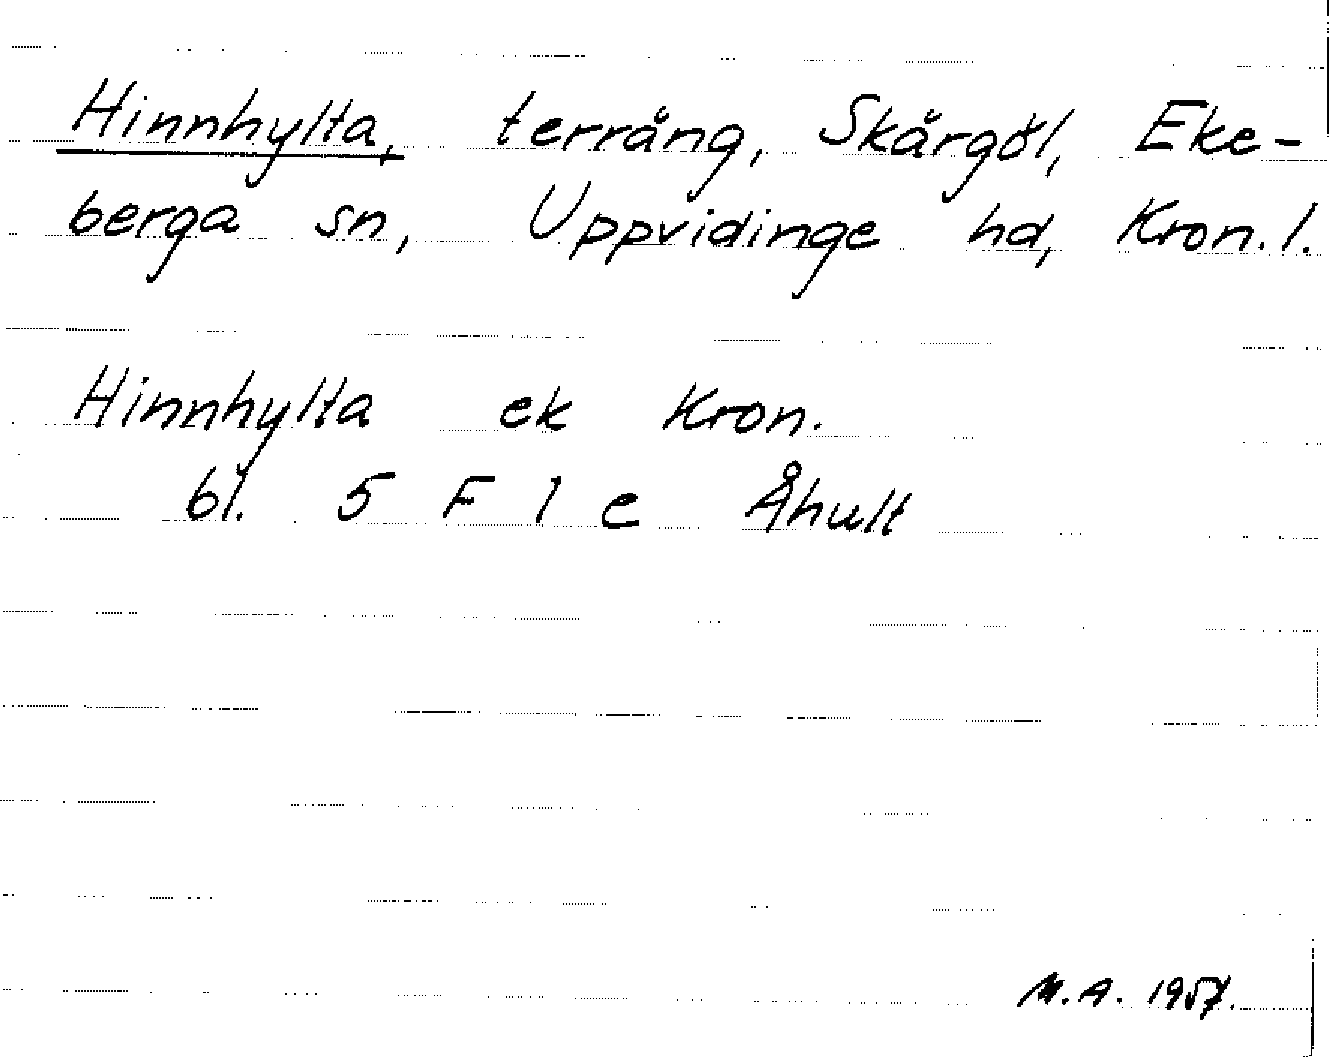 Hinnhylta, terräng, Skärgöl, Eke-
berga sn, Uppvidinge hd, Kron. l.
Hinnhylta ek Kron.
bl. 5 F 1 e Åhult
M.A. 1957.